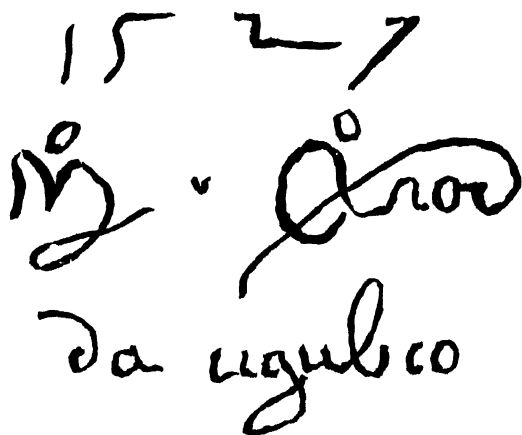 1527
M°
da ugubio